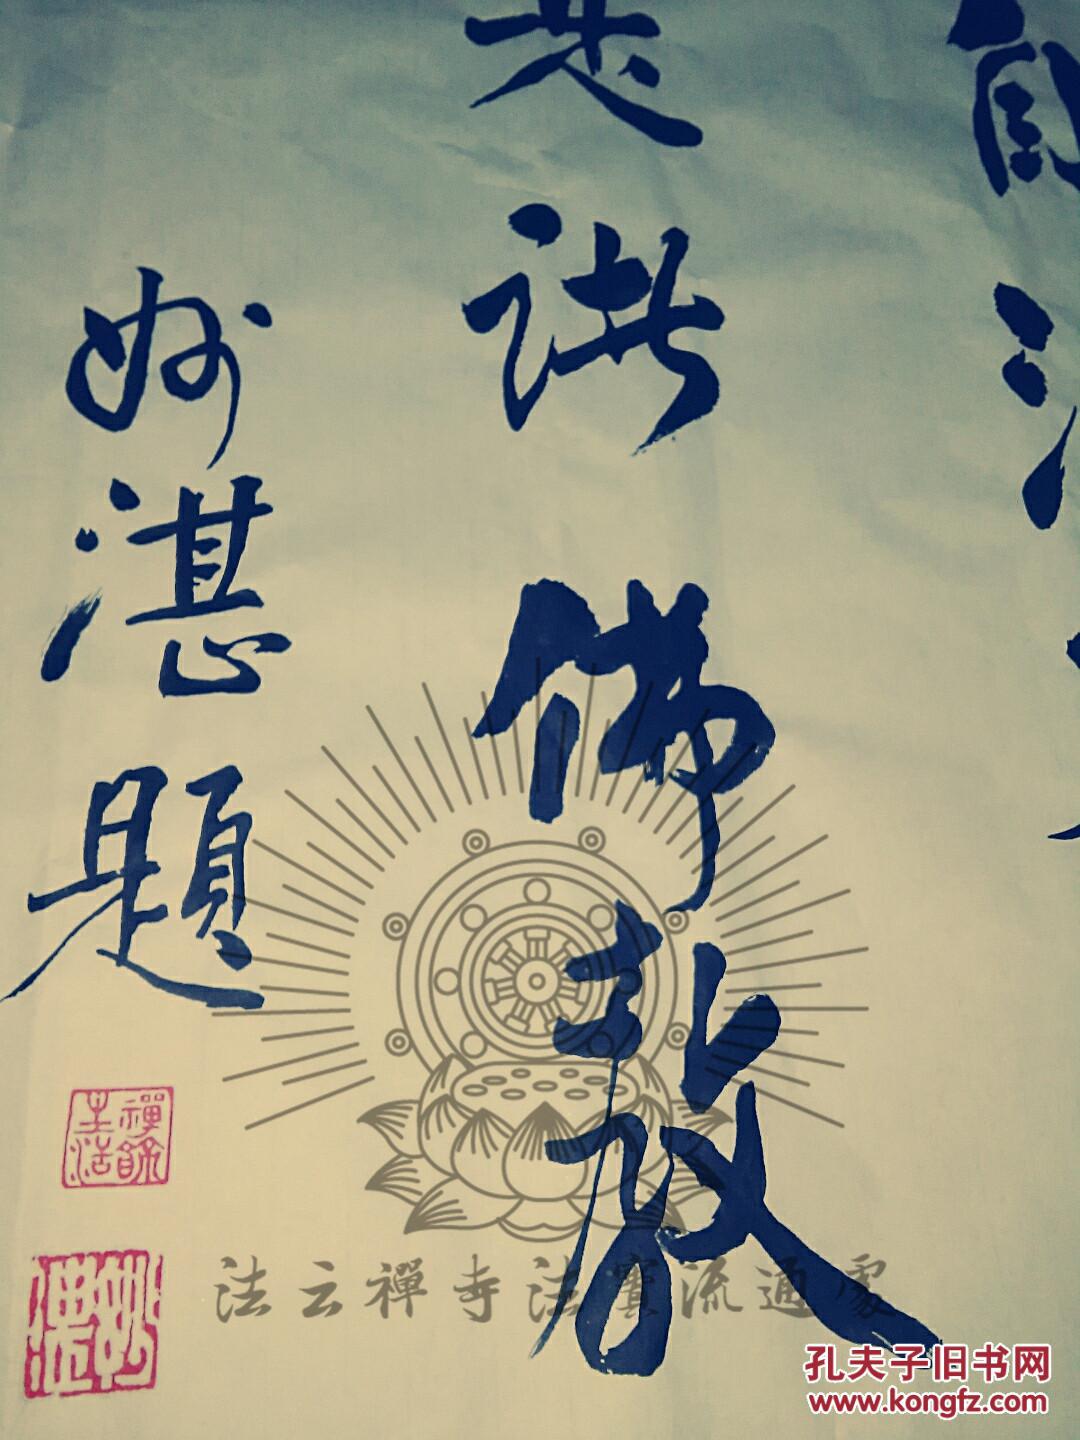 自
是诸佛教
妙湛題
妙湛
法云禪寺法寶流通處
孔夫子旧书网
www.kongfz.com